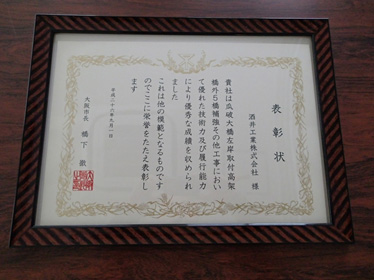 表彰状
酒井工業株式会社 様
貴社は瓜破大橋左岸取付高架
橋外5橋補強その他工事におい
て優れた技術力及び履行能力
により優秀な成績を収められ
ました
これは他の模範となるものです
のでここに栄誉をたたえ表彰し
ます
平成二十六年九月一日
大阪市長 橋下 徹